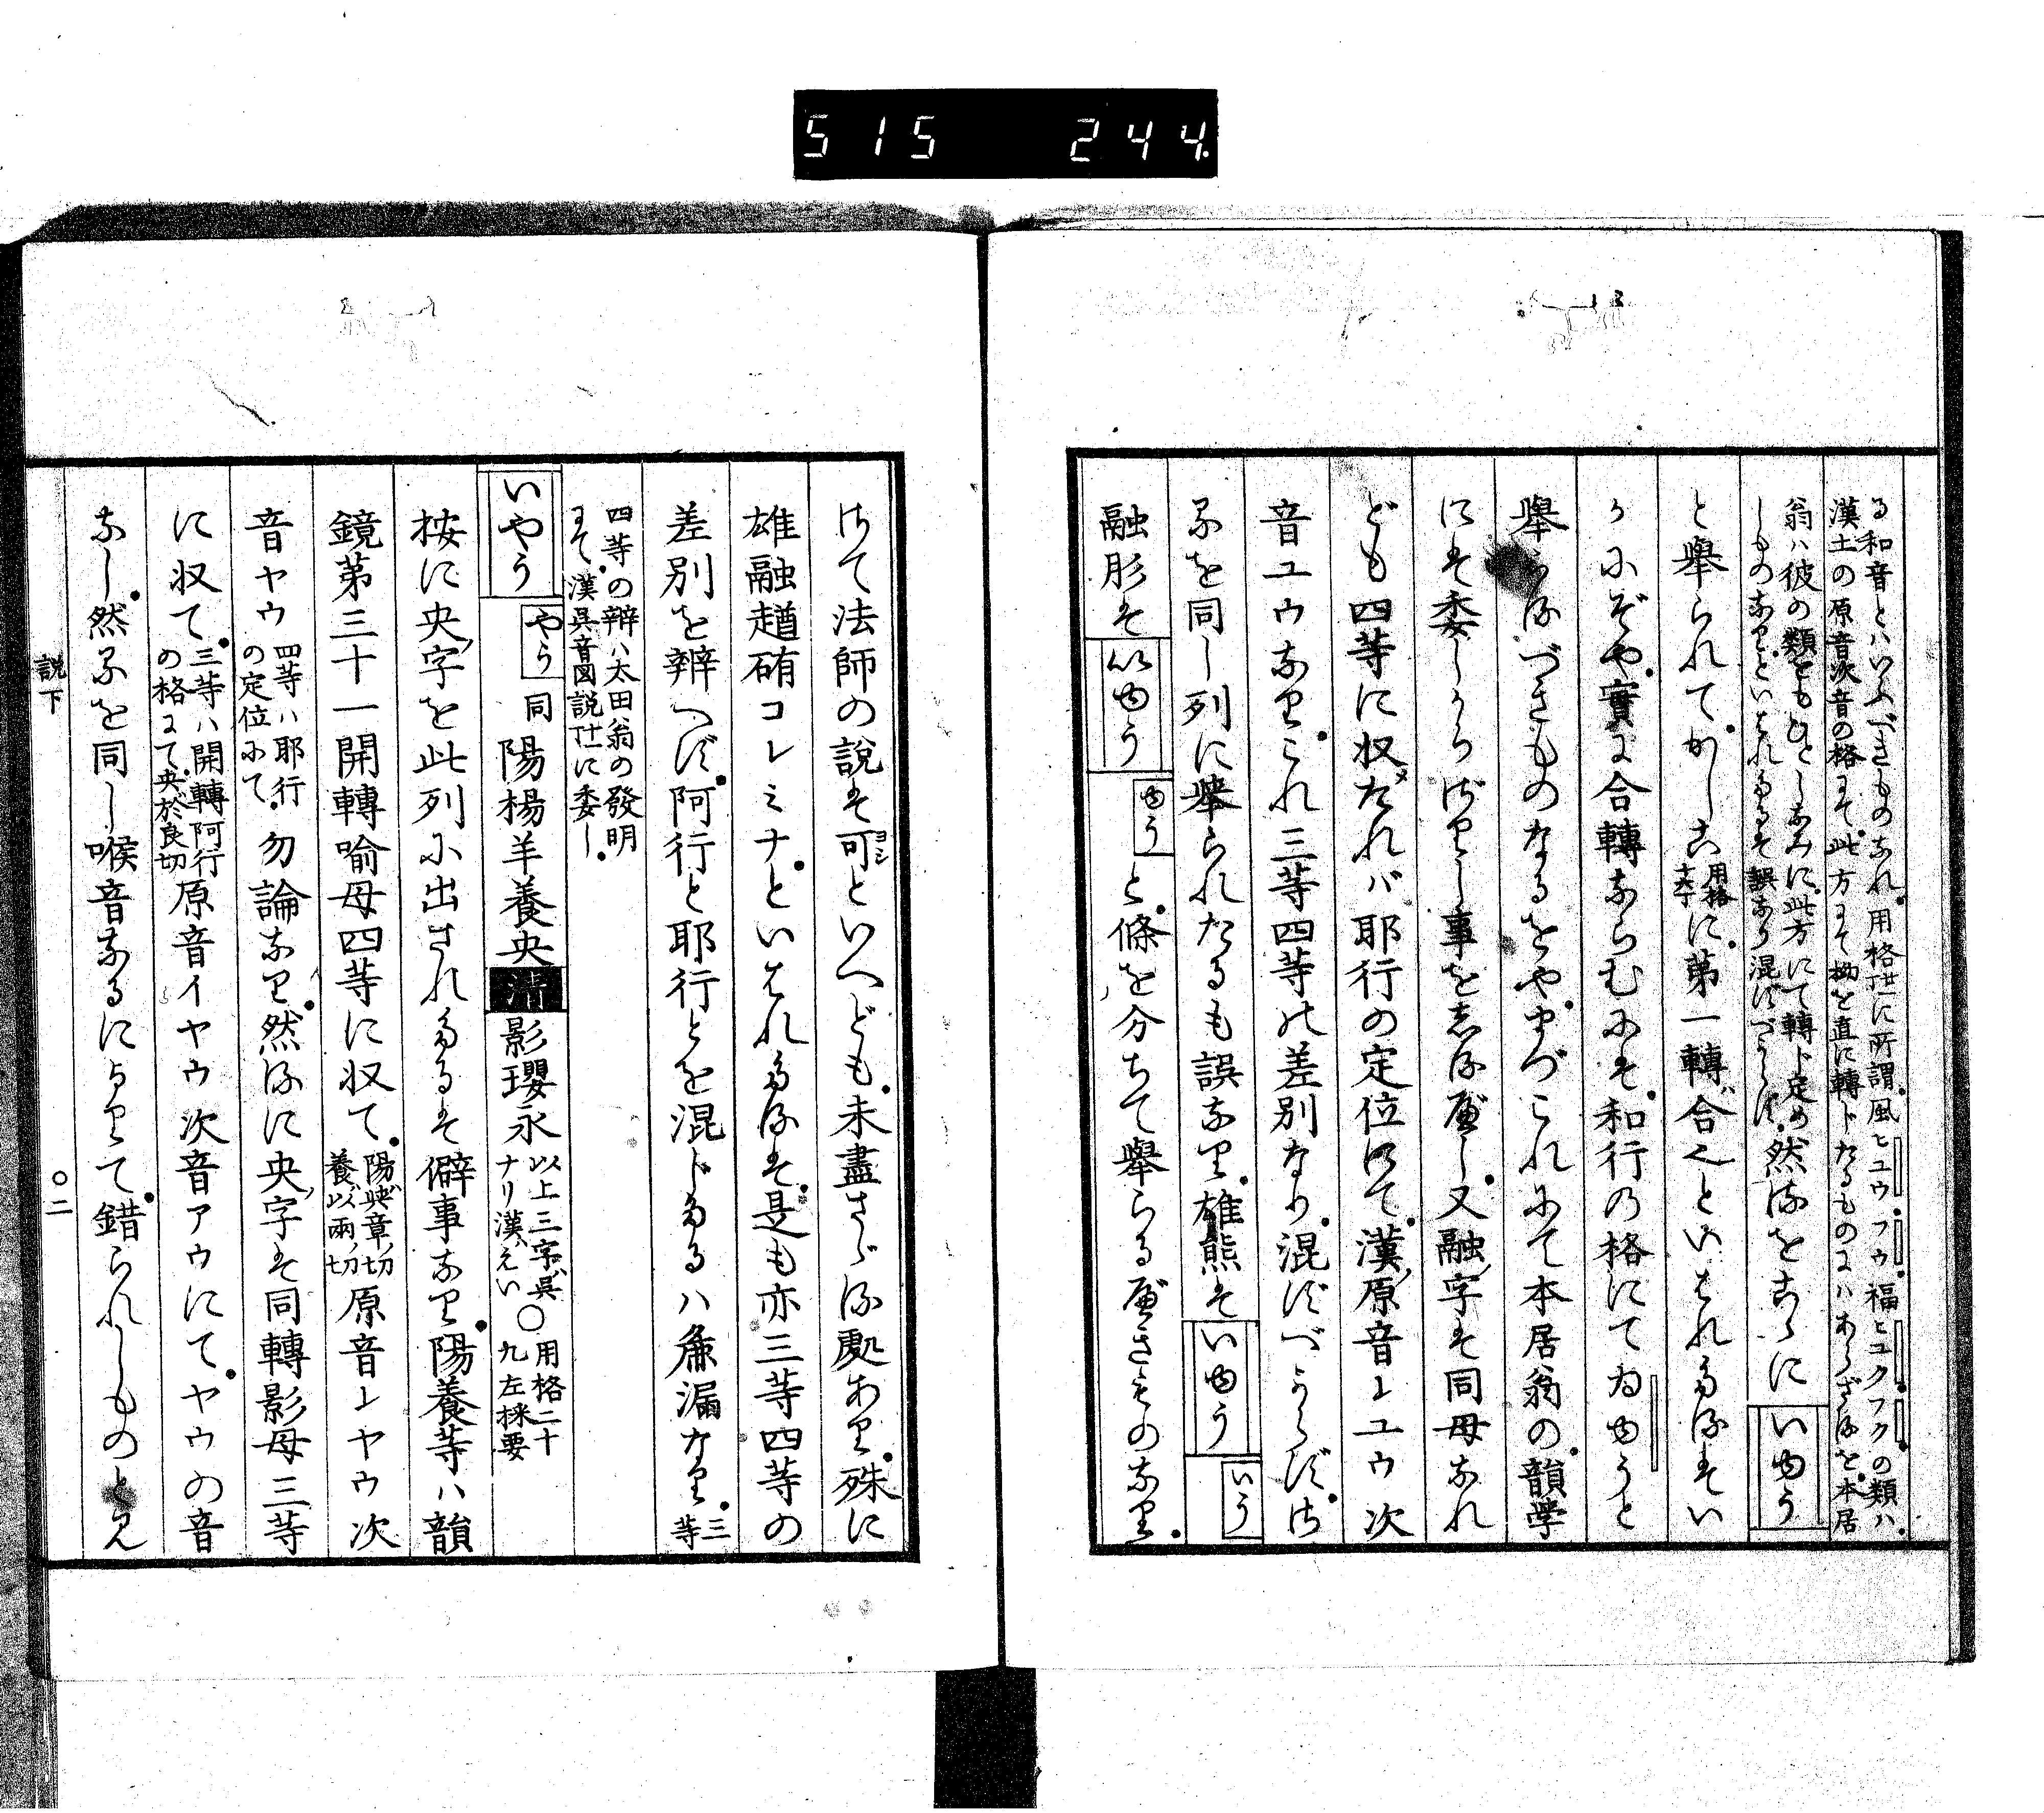 515 244.
る和音とハいふべきものなれ。用格廿一に所謂。風ヒユウ。フウ。福ヒユクフクの類ハ。
漢土の原音次音の格にて。此方にて拗を直に轉じたるものにハあらざるを。本居
翁ハ彼の類をもひとしなみに。此方にて轉じ定め
しものなりといはれたるは誤なり混ずべからず。然るをこゝに いゆう
と擧られて。かしこ用格十六丁に。第一轉合之といはれたるはい
かにぞや。實に合轉ならむには。和行の格にてゐゆうと
擧らるべきものなるをや。まづこれにて本居翁の。韻學
には委しからざりし事をしるべし。又融ノ字は同母なれ
ども四等に収メたれバ耶行の定位にて。漢ノ原音ヒユウ次
音ユウなり。これ三等四等の差別なり。混ずべからず。さ
るを同し列に擧られたるも誤なり。雄熊は いゆう いう
融肜は いゆう ゆう と。條を分ちて擧らるべきものなり。
さて法師の說は可ヨシといへども。未盡さゞる處あり。殊に
雄融趥䂇コレミナ。といはれたるは。是も亦三等四等の
差別を辨へず。阿行と耶行とを混じたるハ麁漏なり。三等
四等の辨ハ太田翁の發明
にて。漢吳音図說廿一に委し。
いやう やう 同 陽楊羊養央 淸 影瓔永 以上三字ハ吳ナリ漢ハえい ○用格二十九左採要
按に央ノ字を此列に出されたるは僻事なり。陽養等ハ韻
鏡第三十一開轉喩母四等に収て。陽ハ與章ノ切養ハ以兩ノ切原音ヒヤウ次
音ヤウ四等ハ耶行の定位にて。勿論なり。然るに央ノ字は同轉影母三等
に収て。三等ハ開轉阿行の格にて。央ハ於良切原音イヤウ次音アウにて。ヤウの音
なし。然るを同し喉音なるによりて。錯られしものとみ
說下 〇二